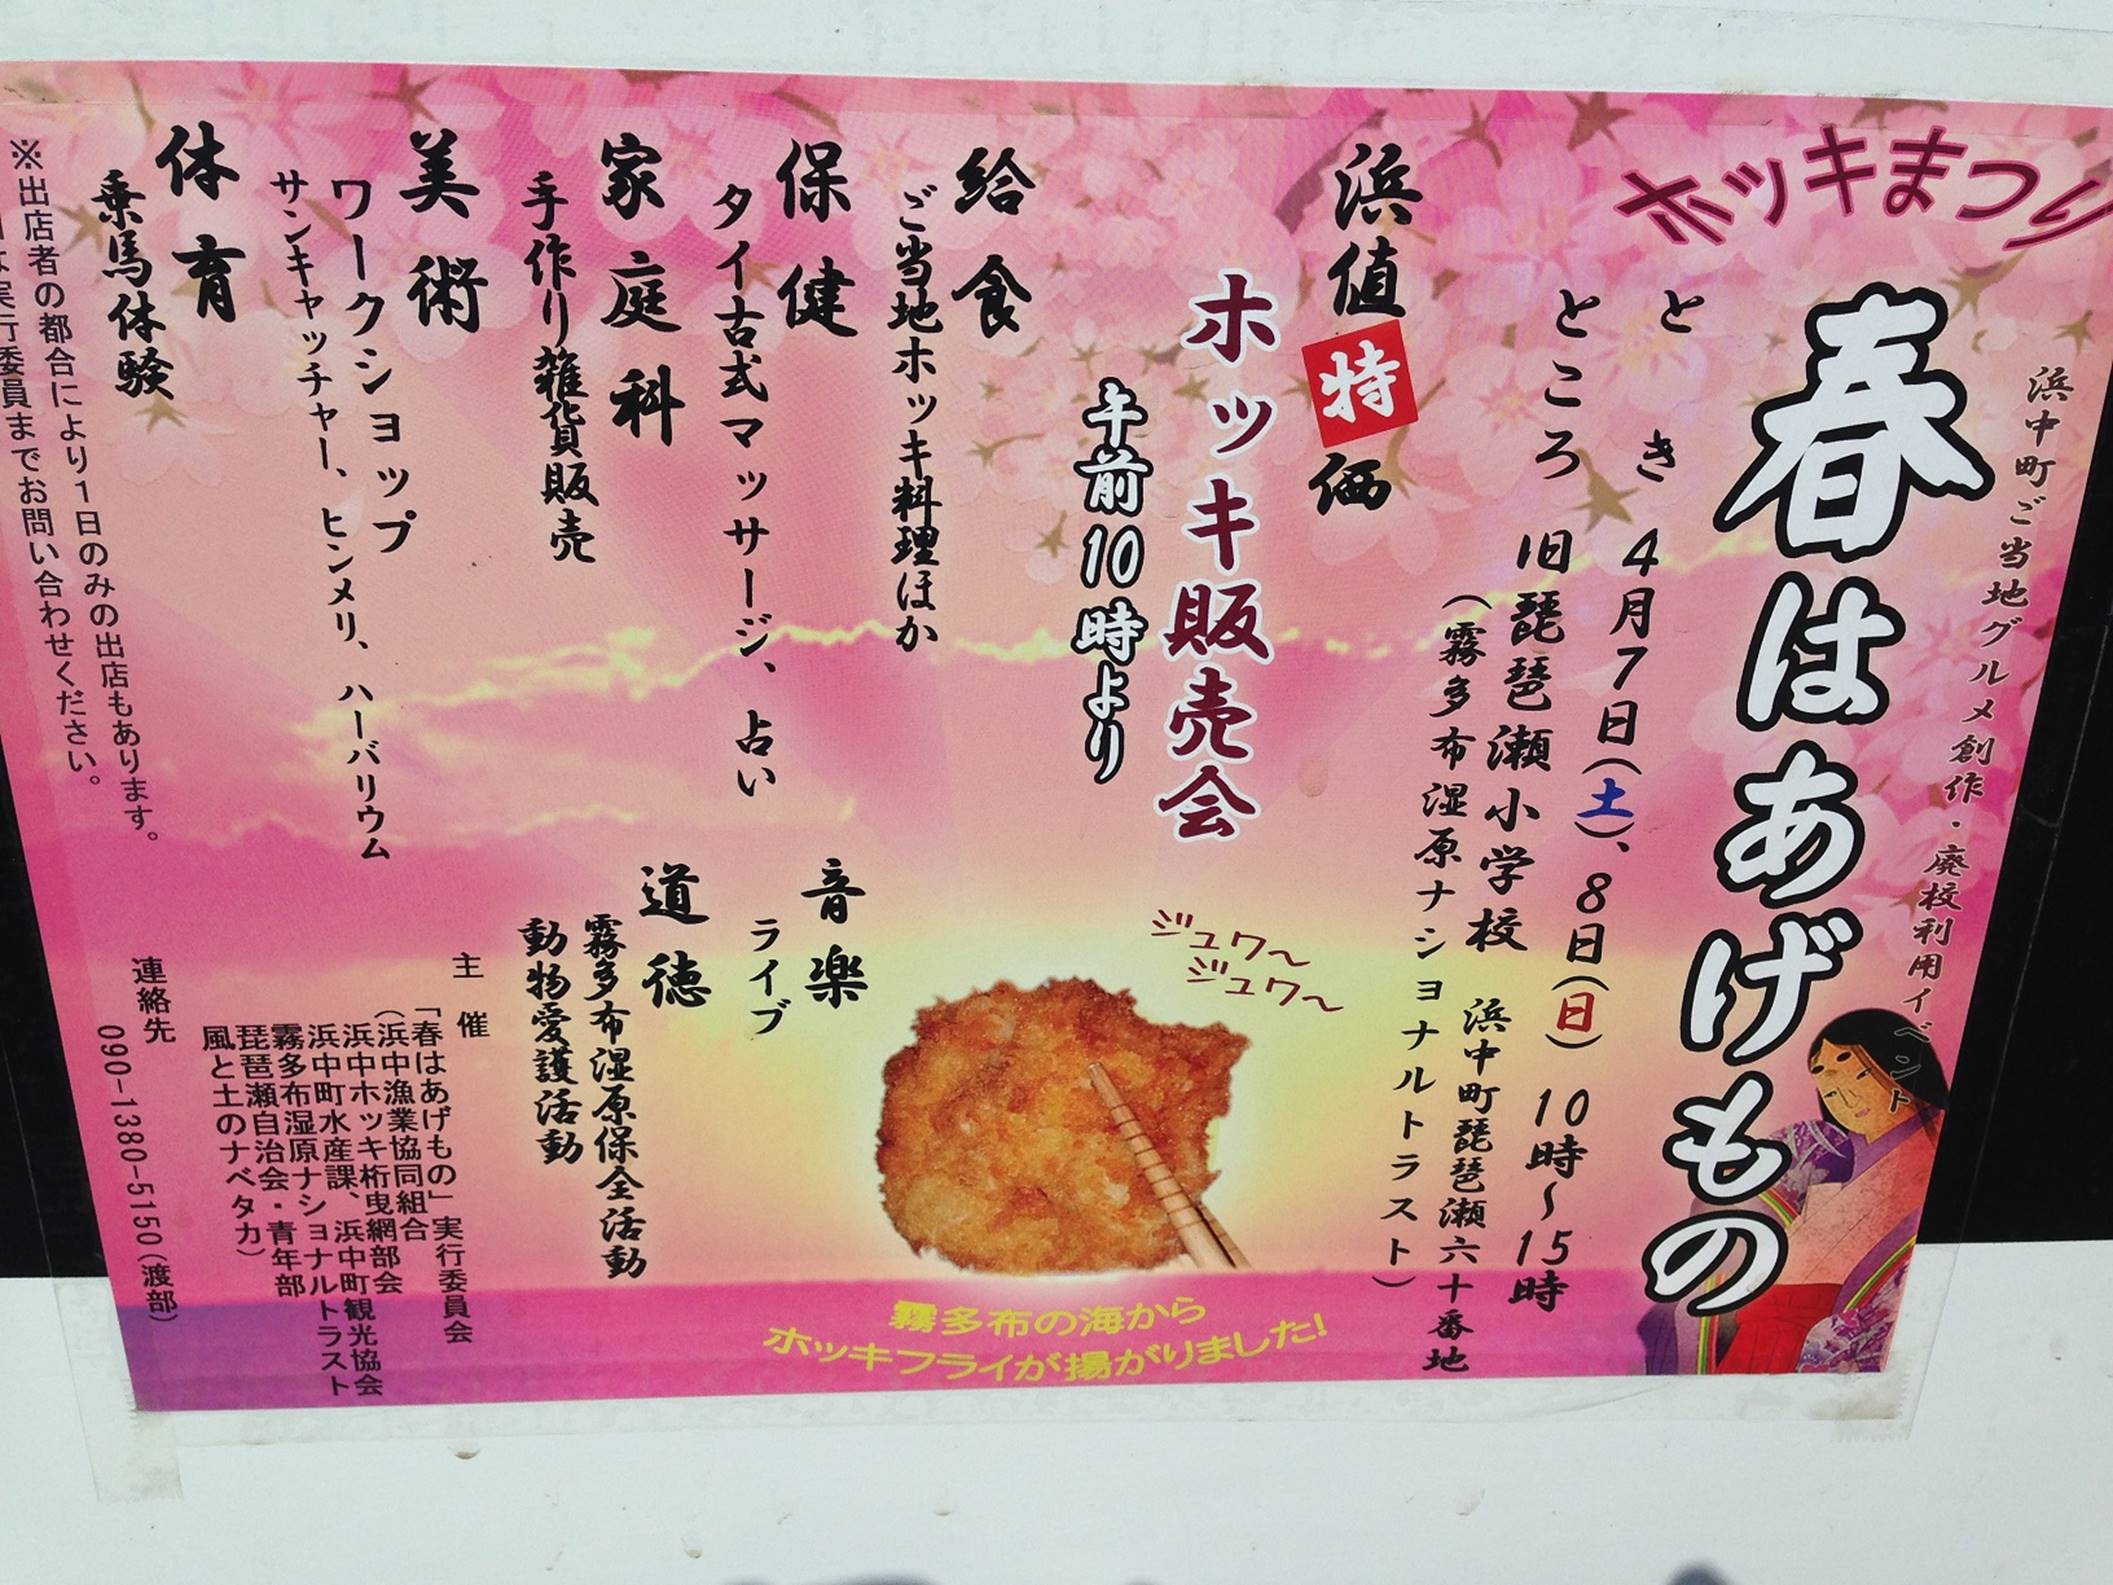 ホッキまつり
浜中町ご当地グルメ創作・廃校利用イベント
春はあげもの
とき 4月7日(土)、8日(日) 10時～15時
ところ 旧琵琶瀬小学校 浜中町琵琶瀬六十番地
(霧多布湿原ナショナルトラスト)
浜値特価
ホッキ販売会
午前10時より
ジュワ～
ジュワ～
給食
ご当地ホッキ料理ほか
保健
タイ古式マッサージ、占い
音楽
ライブ
家庭科
手作り雑貨販売
道徳
霧多布湿原保全活動
動物愛護活動
美術
ワークショップ
サンキャッチャー、ヒンメリ、ハーバリウム
体育
乗馬体験
主催
「春はあげもの」実行委員会
(浜中漁業協同組合
浜中ホッキ桁曳網部会
浜中町水産課、浜中町観光協会
霧多布湿原ナショナルトラスト
琵琶瀬自治会・青年部
風と土のナベタカ)
連絡先
090-1380-5150(渡部)
※出店者の都合により1日のみの出店もあります。
は実行委員までお問い合わせください。
霧多布の海から
ホッキフライが揚がりました!